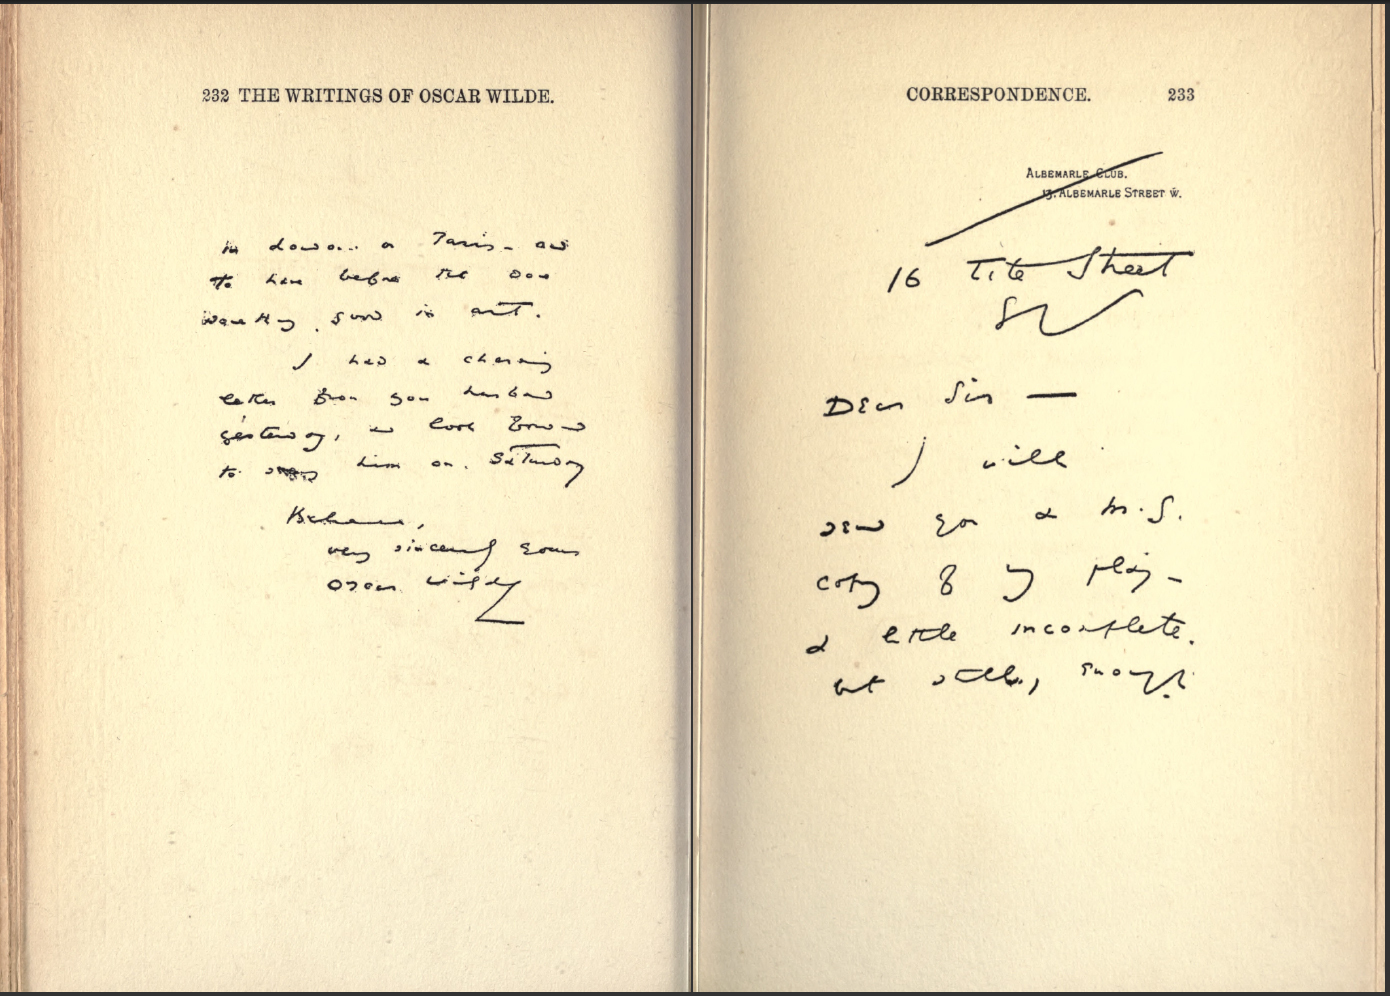 232 THE WRITINGS OF OSCAR WILDE.
in London or Paris - and
to have before the one
worthy, good in art.
I had a charming
letter from your husband
yesterday, and look forward
to him on Saturday
Believe me,
very sincerely yours
Oscar Wilde
CORRESPONDENCE. 233
ALBEMARLE CLUB.
13, ALBEMARLE STREET W.
16 Tite Street
SW
Dear Sir —
I will
send you a M.S.
copy of my play -
a little incomplete.
but still, enough